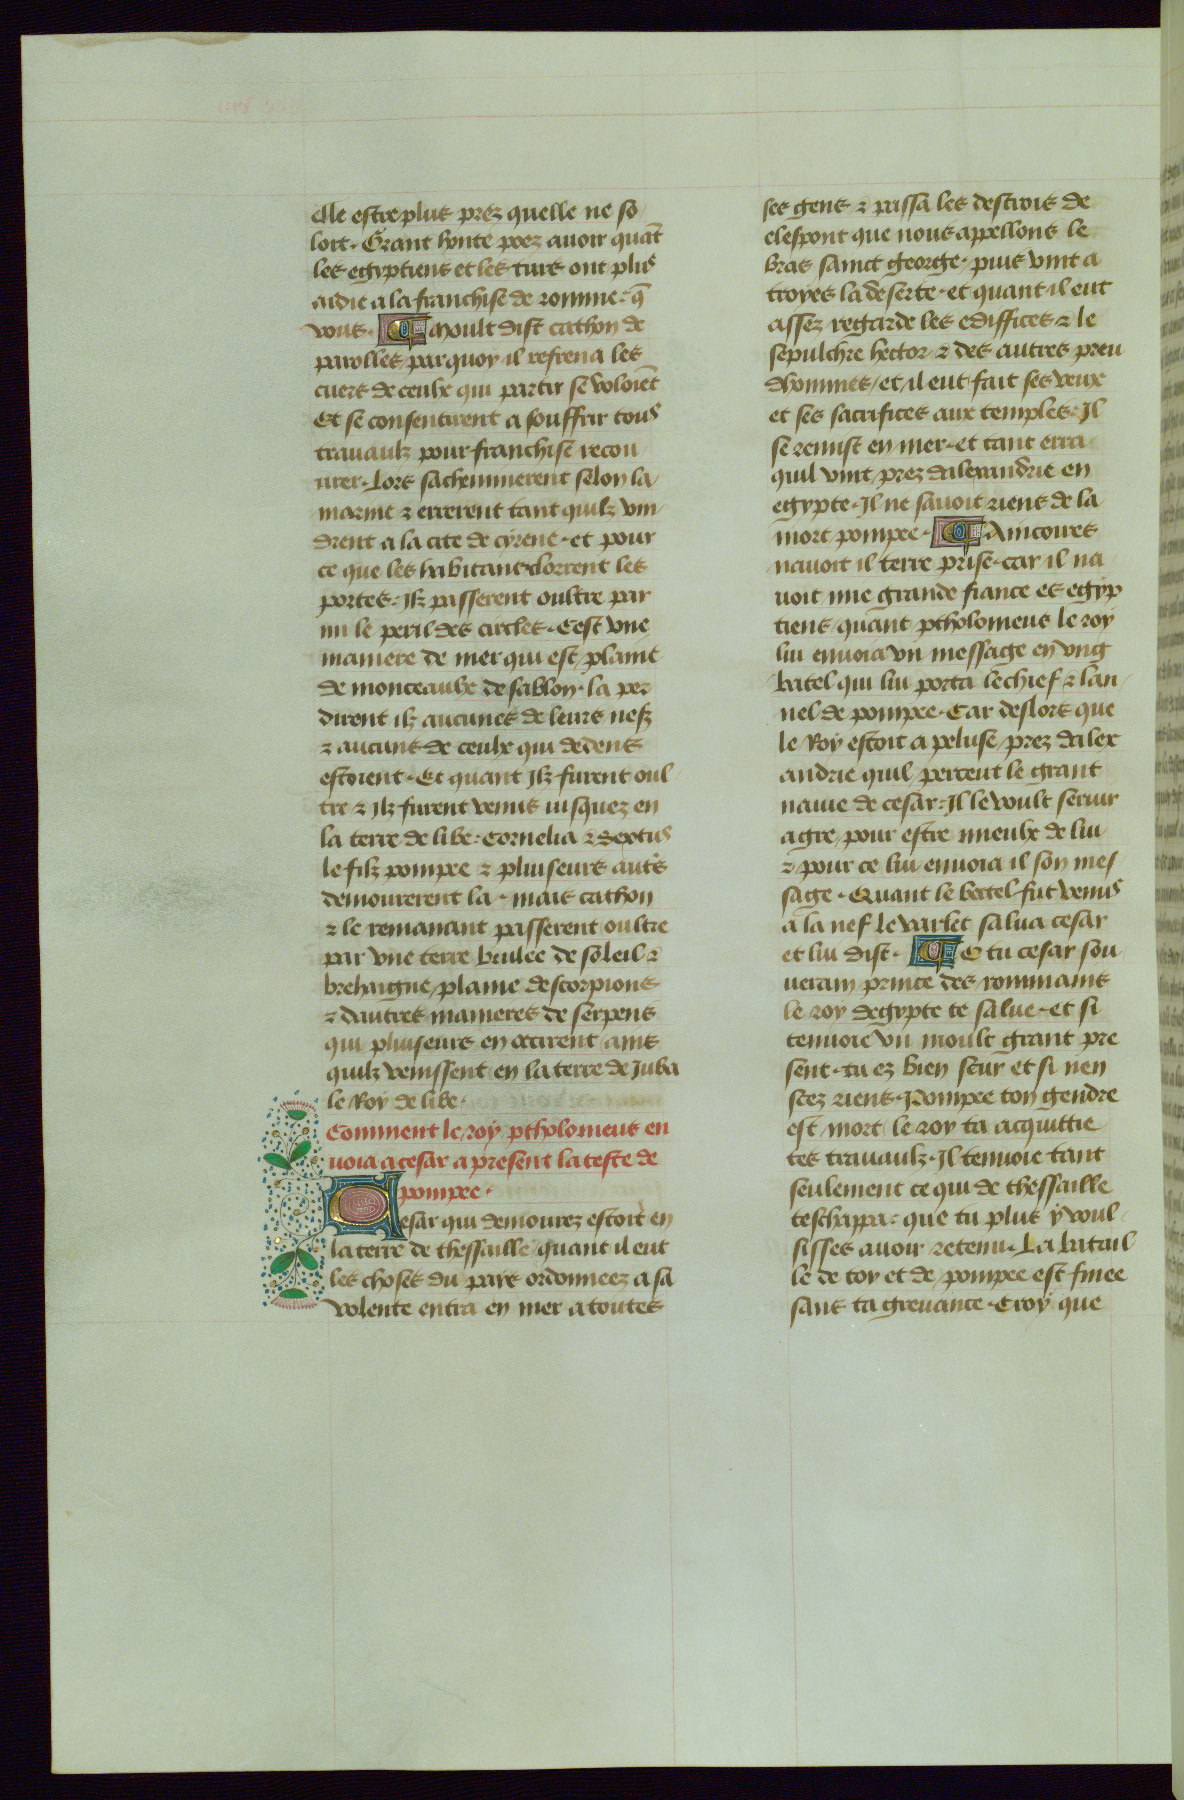 elle estre plus prez quelle ne so
loit. Grant honte poez auoir quāt
les egyptiens et les turs ont plus
aidie a la franchise de romme. q̄
vous. Moult dist cathon de
parolles parquoy il refrena les
cuers de ceulx qui partir se voloiēt
Et se consentirent a souffrir tous
trauaulz pour franchise recou
urer. Lors sacheminerent selon la
marine ⁊ errerent tant quilz vin
drent a la cite de cyrene. et pour
ce que les habitans clorrent les
portes. Ilz passerent oultre par
mi le peril des circles. Cest vne
maniere de mer qui est plaine
de monceaulx de sablon. la per
dirent ilz aucunes de leurs nefz
⁊ aucuns de ceulx qui dedens
estoient. Et quant Ilz furent oul
tre ⁊ ilz furent venus iusquez en
la terre de libe. Cornelia ⁊ Sextus
le filz pompee ⁊ pluiseurs autēs
demourerent la. mais cathon
⁊ le remanant passerent oultre
par vne terre brulee de soleil ⁊
brehaigne plaine descorpions
⁊ dautres manieres de serpens
qui pluiseurs en occirent ains
quilz venissent en la terre de Juba
le Roy de libe.
Comment le roy ptholomeus en
uoia a cesar a present la teste de
pompee.
Cesar qui demourez estoit en
la terre de thessaille quant il eut
les choses du pais ordonneez a sa
volente entra en mer a toutes
ses gens ⁊ passa les destrois de
elespont que nous appellons le
bras sainct george. puis vint a
troyes la deserte. et quant il eut
assez regarde les ediffices ⁊ le
sepulchre hector ⁊ des autres preu
dhommes, et il eut fait ses veux
et ses sacrifices aux temples. Il
se remist en mer. et tant erra
quil vint prez dalexandrie en
egypte. Il ne sauoit riens de la
mort pompee. Aincoires
nauoit il terre prise. car il na
uoit mie grande fiance es egyp
tiens, quant ptholomeus le roy
lui enuoia vn message en vng
batel qui lui porta le chief ⁊ lan
nel de pompee. Car deslors que
le Roy estoit a peluse prez dalex
andrie quil percent le grant
nauie de cesar. Il le voult seruir
a gre pour estre mieulx de lui
⁊ pour ce lui enuoia il son mes
sage. Quant le battel fut venus
a la nef le varlet salua cesar
et lui dist. O tu cesar sou
uerain prince des rommains
le roy degypte te salue. et si
tenuoie vn moult grant pre
sent. tu ez bien seur et si nen
scez riens. Pompee ton gendre
est mort le roy ta acquittie
tes trauaulz. Il tenuoie tant
seulement ce qui de thessaille
teschappa. que tu plus y voul
sisses auoir retenu. La batail
le de toy et de pompee est finee
sans ta greuance. Croy que